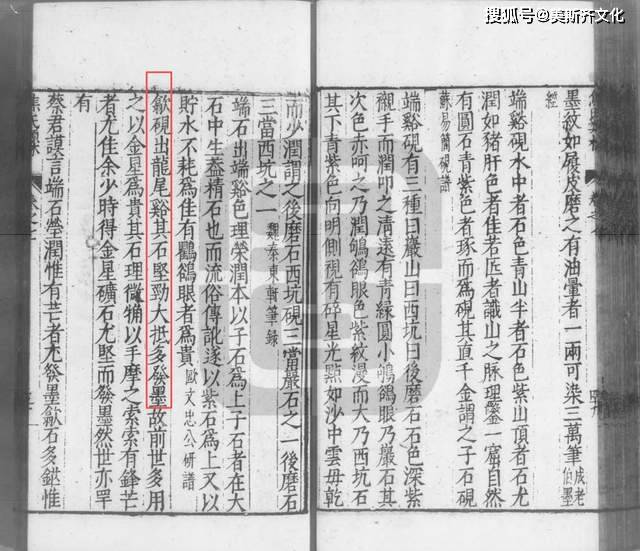 搜狐号@美斯齐文化
墨紋如屐皮磨之有油暈者一兩可染三萬筆 成老伯墨
經
端谿硯水中者石色青山半者石色紫山頂者石尤
潤如猪肝色者佳若匠者識山之脉理鑿一窟自然
有圓石青紫色者琢而爲硯其直千金謂之子石硯
蘇易簡硯譜
端谿硯有三種曰巖山曰西坑曰後磨石石色深紫
襯手而潤叩之清遠有青綠圓小鴝鵒眼乃巖石其
次色赤呵之乃潤鴝鵒眼色紫紋漫而大乃西坑石
其下青紫色向明側視有碎星光點如沙中雲毋乾
而少潤謂之後磨石西坑硯三當巖石之一後磨石
三當西坑之一 魏泰東軒筆録
端石出端谿色理榮潤本以子石爲上子石者在大
石中生葢精石也而流俗傳訛遂以紫石爲上又以
貯水不耗爲佳有鸜鵒眼者爲貴 歐文忠公研譜
歙硯出龍尾谿其石堅勁大抵多發墨故前世多用
之以金星爲貴其石理微麄以手摩之索索有鋒芒
者尤佳余少時得金星礦石尤堅而發墨然世亦罕
有
蔡君謨言端石瑩潤惟有芒者尤發墨歙石多鋩惟